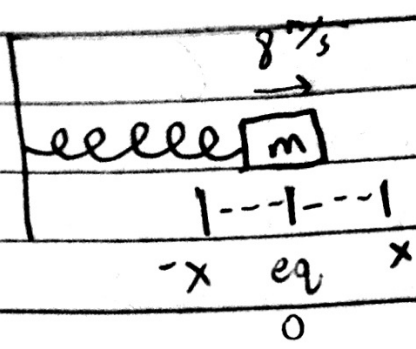 8 m/s
m
-x eq x
0